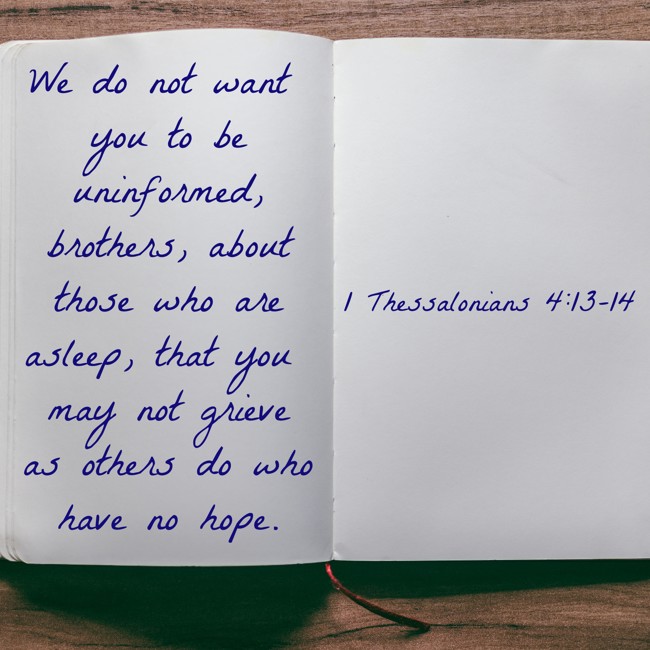 We do not want
you to be
uninformed,
brothers, about
those who are
asleep, that you
may not grieve
as others do who
have no hope.
1 Thessalonians 4:13-14